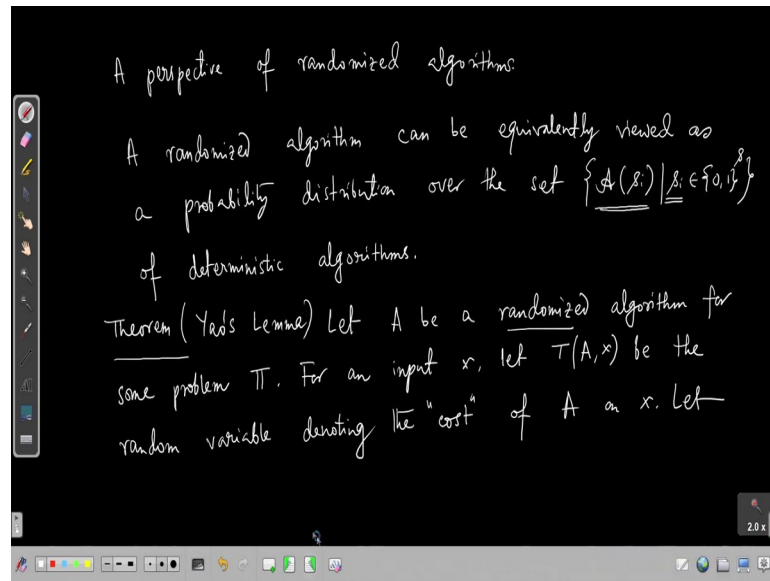 A perspective of randomized algorithms.
A randomized algorithm can be equivalently viewed as
a probability distribution over the set {A(s_i) | s_i ∈ {0,1}^s}
of deterministic algorithms.
Theorem (Yao's Lemma) Let A be a randomized algorithm for
some problem Π. For an input x, let T(A,x) be the
random variable denoting the "cost" of A on x. Let
2.0 x